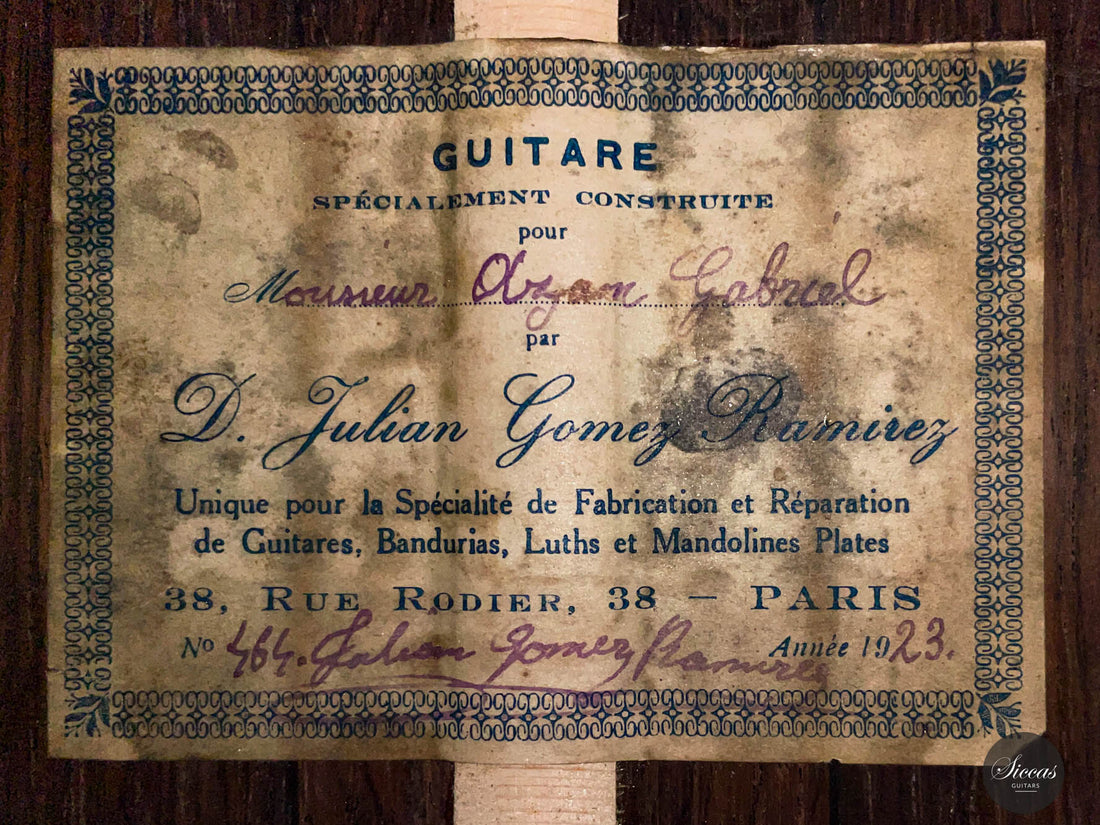 GUITARE
SPÉCIALEMENT CONSTRUITE
pour
Monsieur Gabriel
par
D. Julian Gomez Ramirez
Unique pour la Spécialité de Fabrication et Réparation
de Guitares, Bandurias, Luths et Mandolines Plates
38, RUE RODIER, 38 — PARIS
No 464. Julian Gomez Ramirez Année 1923.
Siccas
GUITARS